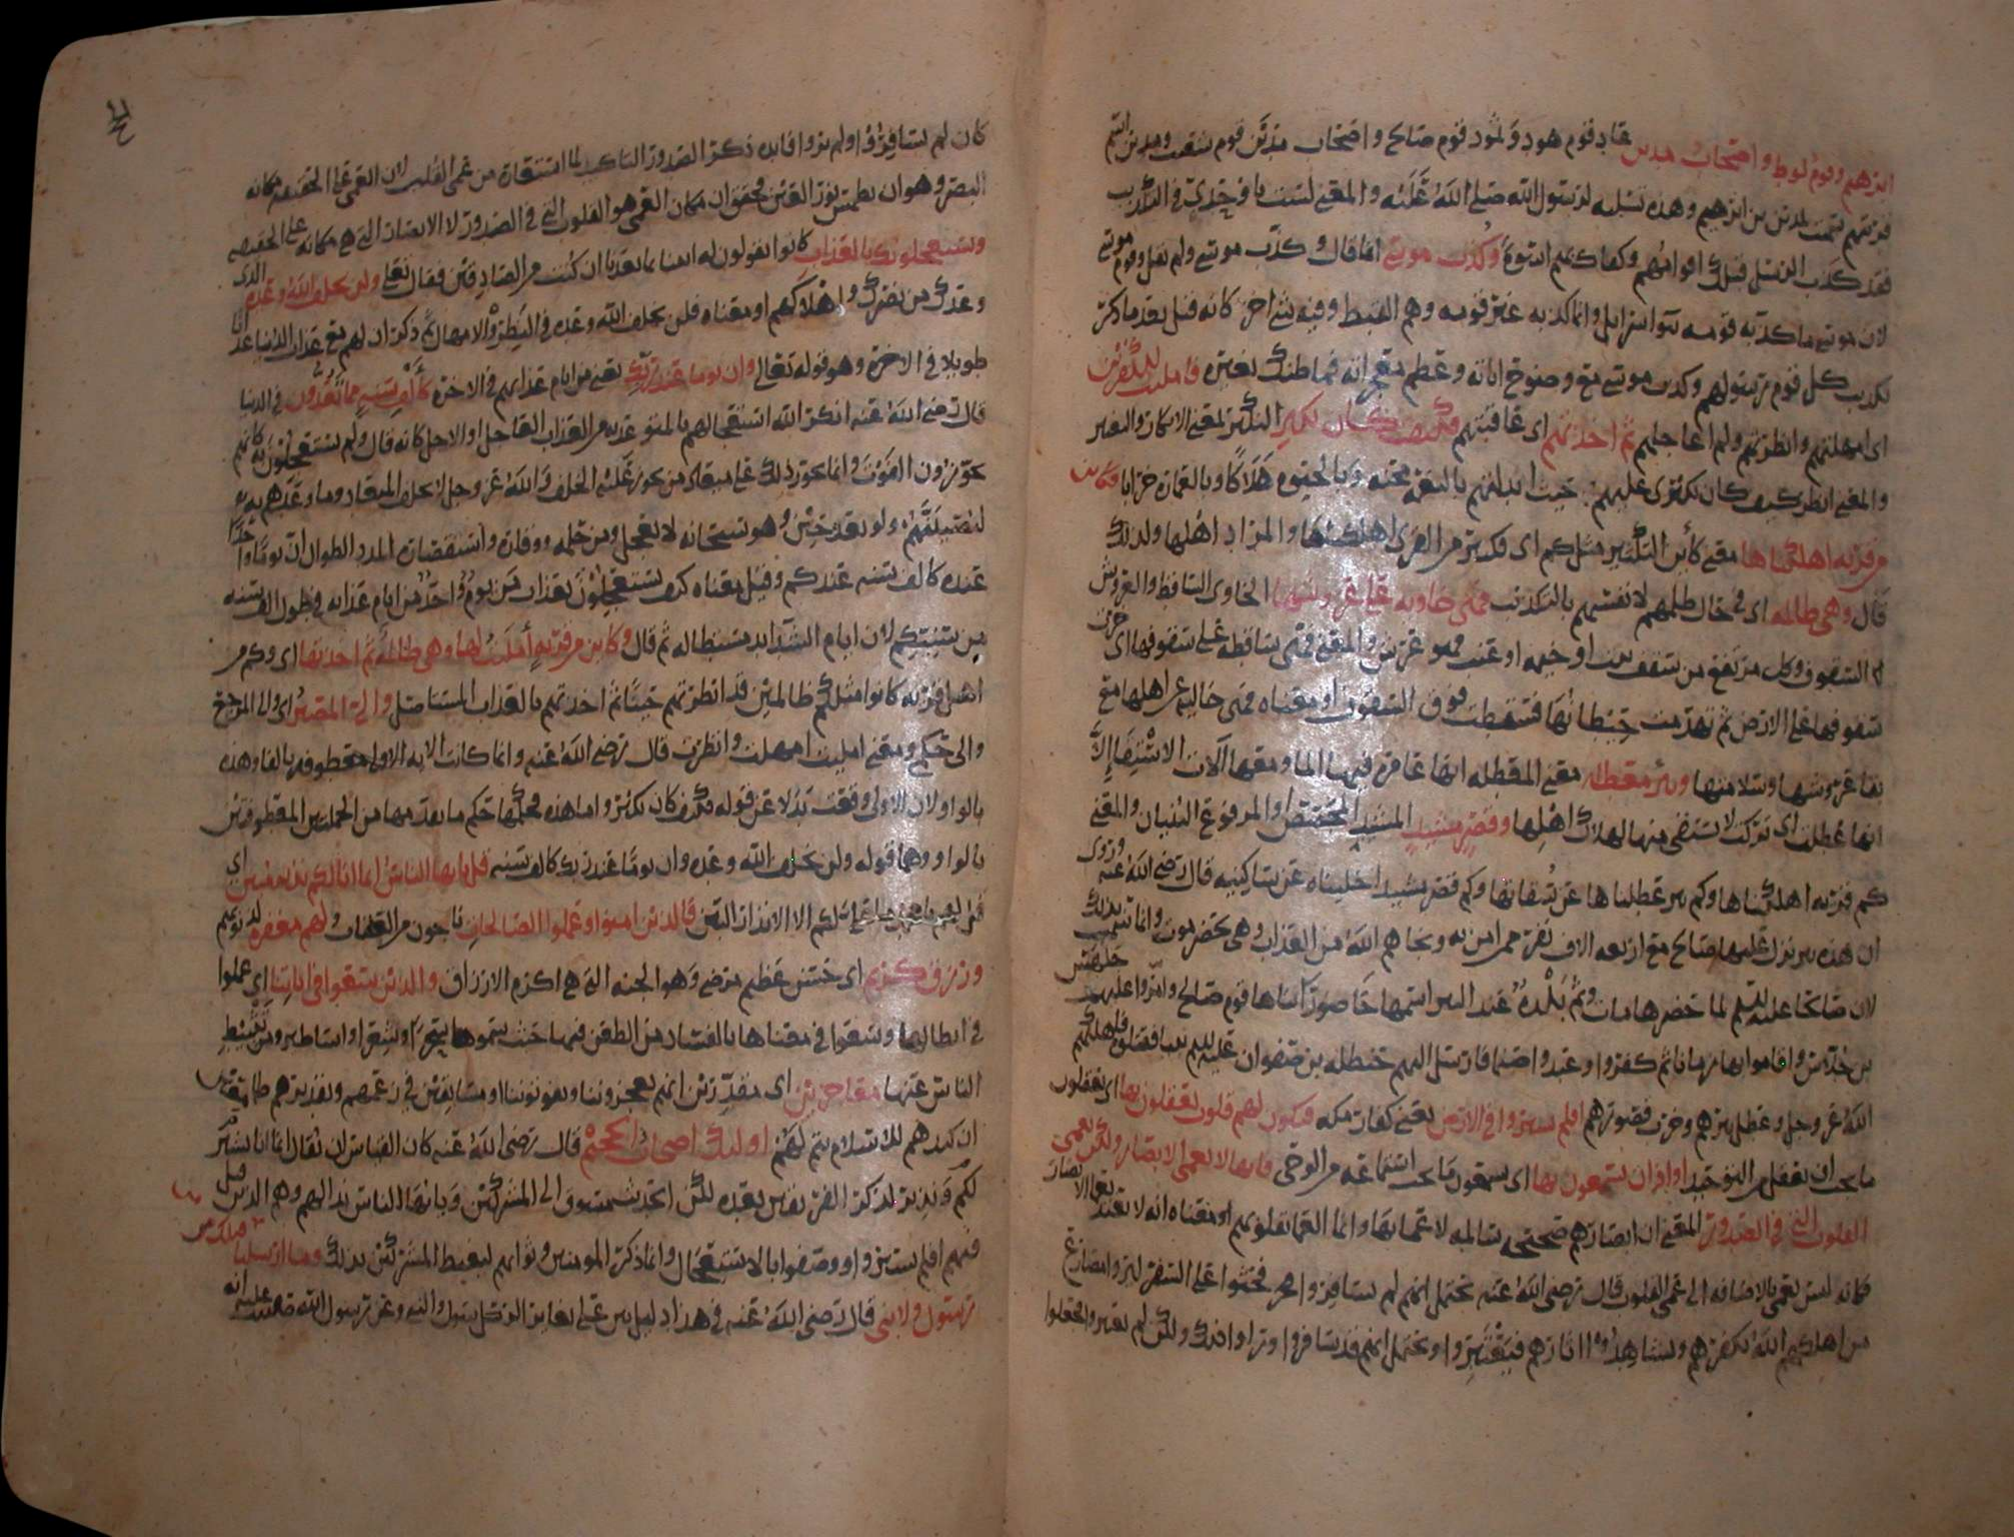 ابرهيم وقوم لوط واصحاب مدين عاد قوم هود وثمود قوم صالح واصحاب مدين قوم شعيب ومدين اسم
قريتهم سميت لمدين بن ابرهيم وهذه تسليه لرسول الله صلى الله عليه والمعنى لست باوحدي في التكذيب
فقد كذب الرسل قبلك اقوامهم وكفاك بهم اسوة وكذب موسى انما قال وكذب موسى ولم يقل وقوم موسى
لان موسى ما كذبه قومه بنوا اسرائيل وانما كذبه غير قومه وهم القبط وفيه شي اخر كانه قيل بعد ما ذكر
تكذيب كل قوم رسولهم وكذب موسى مع وضوح اياته وعظم معجزاته فما ظنك بغيره فامليت للكافرين
اي امهلتهم وانظرتهم ولم اعاجلهم ثم اخذتهم اي عاقبتهم فكيف كان نكير النكير بمعنى الانكار والتغيير
والمعنى انظر كيف كان نكيري عليهم حيث ابدلتهم بالنعمة محنه وبالحيوه هلاكا وبالعمارة خرابا فكاين
من قريه اهلكناها معنى كأين التكثير مثل كم اي فكثير من القرى اهلكناها والمراد اهلها ولذلك
قال وهي ظالمه اي في حال ظلمهم لانفسهم بالتكذيب فهي خاويه على عروشها الخاوى الساقط والعروش
السقوف وكل مرتفع من سقف بيت او خيمه او عنب فهو عرش والمعنى فهي ساقطه على سقوفها اي خرت
سقوفها على الارض ثم تهدمت حيطانها فسقطت فوق السقوف او معناه فهي خاليه عن اهلها مع
بقا عروشها وسلامتها وبئر معطله معنى المعطله انها عامره فيها الما ومعها الات الاستقا الا
انها عطلت اي تركت لا يستقى منها لهلاك اهلها وقصر مشيد المشيد المجصص او المرفوع البنيان والمعنى
كم قريه اهلكناها وكم بير عطلناها عن سقاتها وكم قصر مشيد اخليناه عن ساكنيه قال رضي الله عنه وروي
ان هذه بير نزل عليها صالح مع اربعه الاف نفر ممن امن به ونجاهم الله من العذاب وهي بحضرموت وانما سميت بذلك
لان صالحا عليه السلم لما حضرها مات وثم بلدة عند البير اسمها حاضورا بناها قوم صالح وامروا عليهم جلهس
بن جلاس واقاموا بها زمانا ثم كفروا وعبدوا صنما فارسل اليهم حنظله بن صفوان عليه السلم نبيا فقتلوه فاهلكهم
الله عز وجل وعطل بيرهم وخرب قصورهم افلم يسيروا في الارض يعني كفار مكه فتكون لهم قلوب يعقلون بها اي يعقلون
ما يجب ان يعقل من التوحيد او اذان يسمعون بها اي يسمعون ما يجب استماعه من الوحي فانها لا تعمى الابصار ولكن تعمى
القلوب التي في الصدور المعنى ان ابصارهم صحيحه سالمه لا عما بها وانما العما بقلوبهم او معناه انه لا يعتد بعما الابصار
فكانه ليس بعمى بالاضافه الى عمى القلوب قال رضي الله عنه يحتمل انهم لم يسافروا فحثوا على السفر ليروا مصارع
من اهلكهم الله بكفرهم ويشاهدوا اثارهم فيعتبروا ويحتمل انهم قد سافروا وراوا ذلك ولكن لم يعتبروا فجعلوا
كان لم يسافروا ولم يروا فايده ذكر الصدور التاكيد لما استنقاه من عمى القلب لان العمى على الحقيقه مكانه
البصر وهو ان يطمس نور العين فحقق ان مكان العمى هو القلوب التي في الصدور لا الابصار التي هي مكانه على الحقيقه
ويستعجلونك بالعذاب كانوا يقولون له ايتنا بما تعدنا ان كنت من الصادقين فقال تعالى ولن يخلف الله وعده الذي
وعدك من نصرك واهلاكهم او معناه فلن يخلف الله وعده في النظرة والامهال ثم ذكر ان لهم مع عذاب الدنيا عذابا
طويلا في الاخرة وهو قوله تعالى وان يوما عند ربك يعني من ايام عذابهم في الاخره كالف سنه مما تعدون في الدنيا
قال رضي الله عنه انكر الله استعجالهم بالمتوعد به من العذاب العاجل او الاجل كانه قال ولم يستعجلون به كانهم
يجوزون الفوت وانما يجوز ذلك على ميعاد من يجوز عليه الخلف والله عز وجل لا يخلف الميعاد وما وعدهم به
ليصيبنهم ولو بعد حين وهو سبحانه لا يعجل ومن حلمه ووقاره واستقصاره المدد الطوال ان يوما واحدا
عنده كالف سنه عندكم وقيل معناه كيف يستعجلون بعذاب من يوم واحد من ايام عذابه في طول الف سنه
من سنيكم لان ايام الشدايد مستطاله ثم قال وكاين من قريه امليت لها وهي ظالمه ثم اخذتها اي وكم من
اهل قريه كانوا مثلكم ظالمين قد انظرتهم حينا ثم اخذتهم بالعذاب المستاصل والي المصير اي والي المرجع
والى حكمي ومعنى امليت امهلت وانظرت قال رضي الله عنه وانما كانت الايه الاولى معطوفه بالفا وهذه
بالواو لان الاولى وقعت بدلا عن قوله فكيف كان نكير واما هذه فحكمها حكم ما تقدمها من الجملتين المعطوفتين
بالواو وهما قوله ولن يخلف الله وعده وان يوما عند ربك كالف سنه قل يا ايها الناس انما انا لكم نذير مبين اي
لكم الا الانذار البين فالذين امنوا وعملوا الصالحات ناجون من العقاب ولهم مغفره لذنوبهم
ورزق كريم اي حسن عظيم مرضي وهو الجنه التي هي اكرم الارزاق والذين سعوا في اياتنا اي عملوا
في ابطالها وسعوا في معناها بالفساد من الطعن فيها حيث سموها سحرا وشعرا واساطير ومن تثبيط
الناس عنها معاجزين اي مقدرين انهم يعجزوننا ويفوتوننا او مسابقين في زعمهم وتقديرهم طامعين
ان كيدهم للاسلام يتم لهم اولئك اصحاب الجحيم قال رضي الله عنه كان القياس ان يقال انما انا بشير
لكم ونذير لذكر الفريقين بعده لكن الحديث مسوق الى المشركين ويا ايها الناس ندا لهم وهم الذين قيل
فيهم افلم يسيروا ووصفوا بالاستعجال وانما ذكر المومنين وثوابهم ليغيظ المشركين بذلك وما ارسلنا من قبلك من
رسول ولا نبي قال رضي الله عنه في هذا دليل بين على تغاير الرسول والنبي وعن رسول الله صلى الله عليه انه